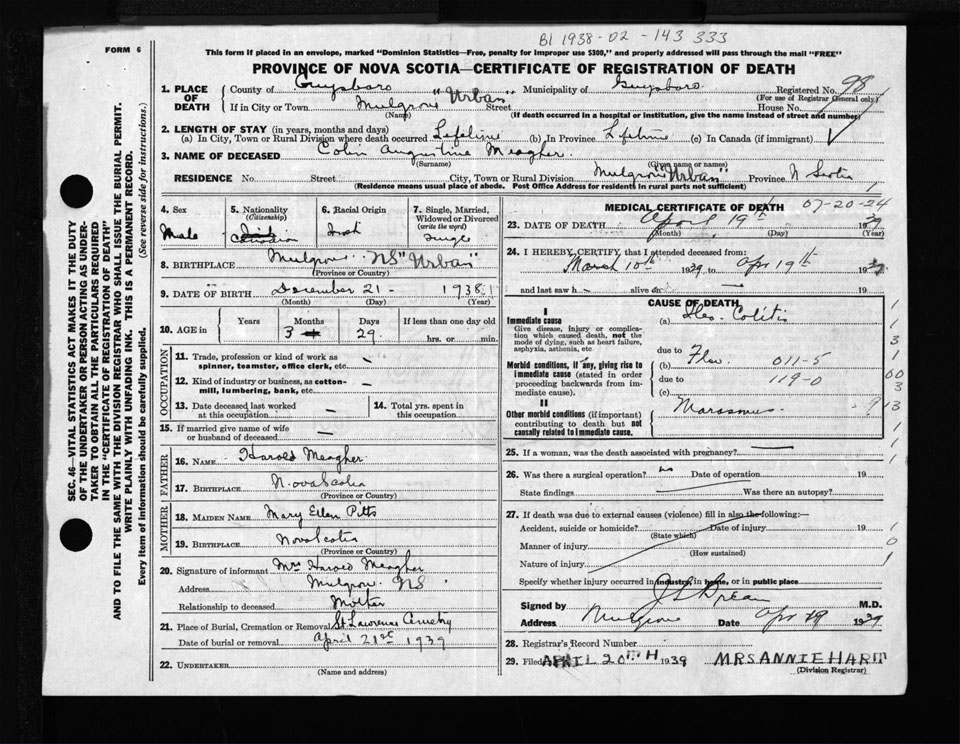 FORM 6
B1 1938-02-143 333
This form if placed in an envelope, marked "Dominion Statistics—Free, penalty for improper use $300," and properly addressed will pass through the mail "FREE"
PROVINCE OF NOVA SCOTIA—CERTIFICATE OF REGISTRATION OF DEATH
1. PLACE OF DEATH County of Guysboro Municipality of Guysboro Registered No. 98
(For use of Registrar General only)
If in City or Town Mulgrave "Urban" Street House No.
(Name) (If death occurred in a hospital or institution, give the name instead of street and number)
2. LENGTH OF STAY (in years, months and days)
(a) In City, Town or Rural Division where death occurred Lifetime (b) In Province Lifetime (c) In Canada (if immigrant)
3. NAME OF DECEASED Colin Augustine Meagher
(Surname) (Given name or names)
RESIDENCE No. Street City, Town or Rural Division Mulgrave "Urban" Province N Scotia
(Residence means usual place of abode. Post Office Address for residents in rural parts not sufficient)
SEC. 46—VITAL STATISTICS ACT MAKES IT THE DUTY
OF THE UNDERTAKER OR PERSON ACTING AS UNDER-
TAKER TO OBTAIN ALL THE PARTICULARS REQUIRED
IN THE "CERTIFICATE OF REGISTRATION OF DEATH"
AND TO FILE THE SAME WITH THE DIVISION REGISTRAR WHO SHALL ISSUE THE BURIAL PERMIT.
WRITE PLAINLY WITH UNFADING INK. THIS IS A PERMANENT RECORD.
Every item of information should be carefully supplied. (See reverse side for instructions.)
4. Sex Male
5. Nationality (Citizenship) Canadian
6. Racial Origin Irish
7. Single, Married, Widowed or Divorced (write the word) Single
8. BIRTHPLACE Mulgrave NS "Urban"
(Province or Country)
9. DATE OF BIRTH December 21 - 1938
(Month) (Day) (Year)
10. AGE in Years Months Days If less than one day
3 29 hrs. or min.
OCCUPATION
11. Trade, profession or kind of work as spinner, teamster, office clerk, etc. —
12. Kind of industry or business, as cotton-mill, lumbering, bank, etc. —
13. Date deceased last worked at this occupation —
14. Total yrs. spent in this occupation
15. If married give name of wife or husband of deceased —
FATHER
16. NAME Harold Meagher
17. BIRTHPLACE Nova Scotia
(Province or Country)
MOTHER
18. MAIDEN NAME Mary Ellen Pitts
19. BIRTHPLACE Nova Scotia
(Province or Country)
20. Signature of informant Mrs Harold Meagher
Address Mulgrave NS
Relationship to deceased Mother
21. Place of Burial, Cremation or Removal St Lawrence Cemetery
Date of burial or removal April 21st 1939
22. UNDERTAKER
(Name and address)
MEDICAL CERTIFICATE OF DEATH 07-20-24
23. DATE OF DEATH April 19th 1939
(Month) (Day) (Year)
24. I HEREBY CERTIFY, that I attended deceased from:
March 10th 1939 to Apr 19th 1939
and last saw h alive on 19
CAUSE OF DEATH
I
Immediate cause (a) Ileo-Colitis
Give disease, injury or complication which caused death, not the mode of dying, such as heart failure, asphyxia, asthenia, etc.
due to
Morbid conditions, if any, giving rise to immediate cause (stated in order proceeding backwards from immediate cause). (b) Flu 011-5
due to 119-0
(c)
II
Other morbid conditions (if important) contributing to death but not causally related to immediate cause. Marasmus
25. If a woman, was the death associated with pregnancy? —
26. Was there a surgical operation? no Date of operation 19
State findings Was there an autopsy?
27. If death was due to external causes (violence) fill in also the following:—
Accident, suicide or homicide? Date of injury 19
(State which)
Manner of injury
(How sustained)
Nature of injury
Specify whether injury occurred in industry, in home, or in public place
Signed by M.D.
Address Mulgrave Date Apr 19 1939
28. Registrar's Record Number
29. Filed APRIL 20TH 1939 MRS ANNIE HART
(Division Registrar)